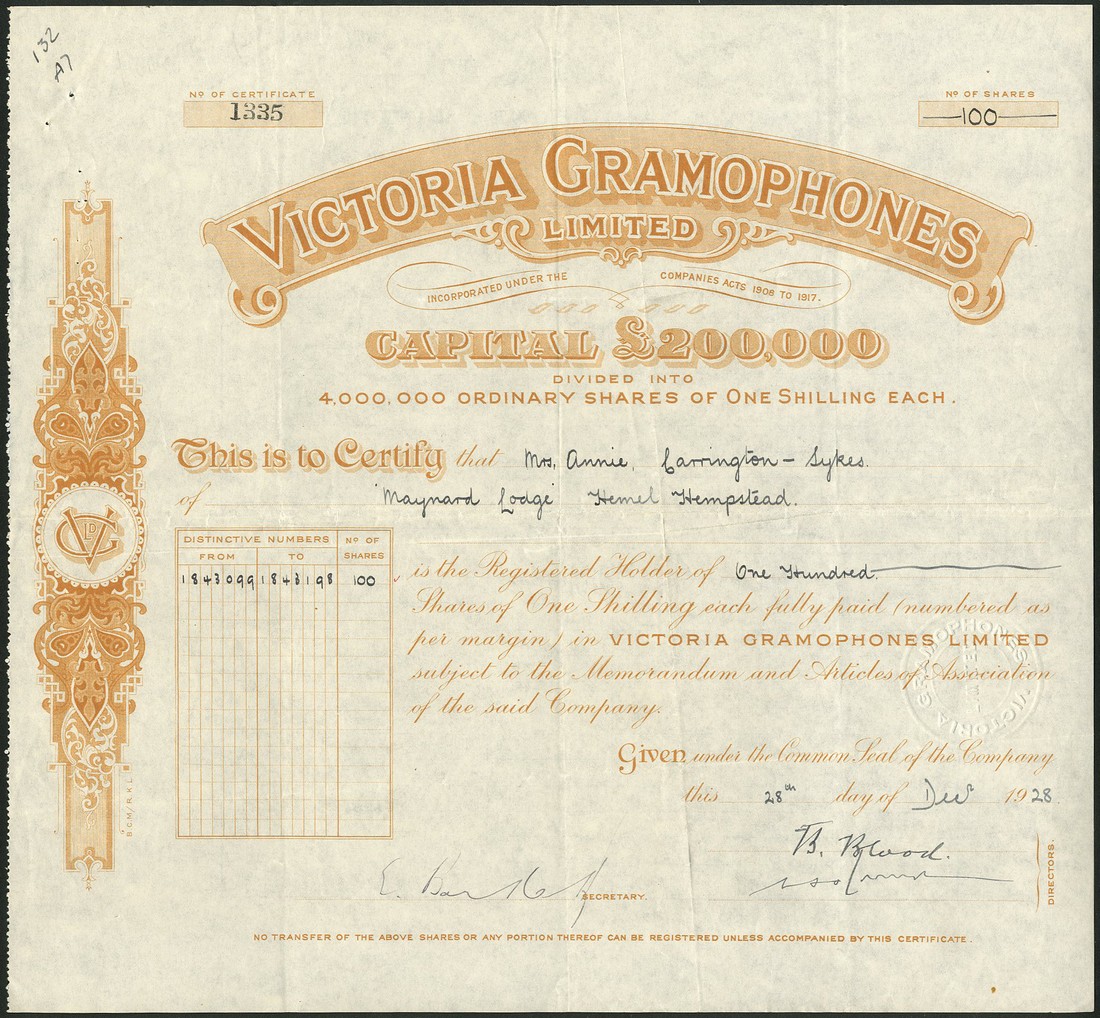 132
A7
No OF CERTIFICATE
1335
No OF SHARES
100
VICTORIA GRAMOPHONES
LIMITED
INCORPORATED UNDER THE COMPANIES ACTS 1908 TO 1917.
CAPITAL £200,000
DIVIDED INTO
4,000,000 ORDINARY SHARES OF ONE SHILLING EACH.
This is to Certify that Mrs. Annie, Carrington-Sykes.
of 'Maynard Lodge' Hemel Hempstead.
DISTINCTIVE NUMBERS No OF SHARES
FROM TO
1843099 1843198 100
is the Registered Holder of One Hundred.
Shares of One Shilling each fully paid (numbered as
per margin) in VICTORIA GRAMOPHONES LIMITED
subject to the Memorandum and Articles of Association
of the said Company.
VICTORIA GRAMOPHONES
Given under the Common Seal of the Company
this 28th day of Decr 1928.
B. Blood.
DIRECTORS.
SECRETARY.
NO TRANSFER OF THE ABOVE SHARES OR ANY PORTION THEREOF CAN BE REGISTERED UNLESS ACCOMPANIED BY THIS CERTIFICATE.
LD
VG
B.C.M/R.K.L.